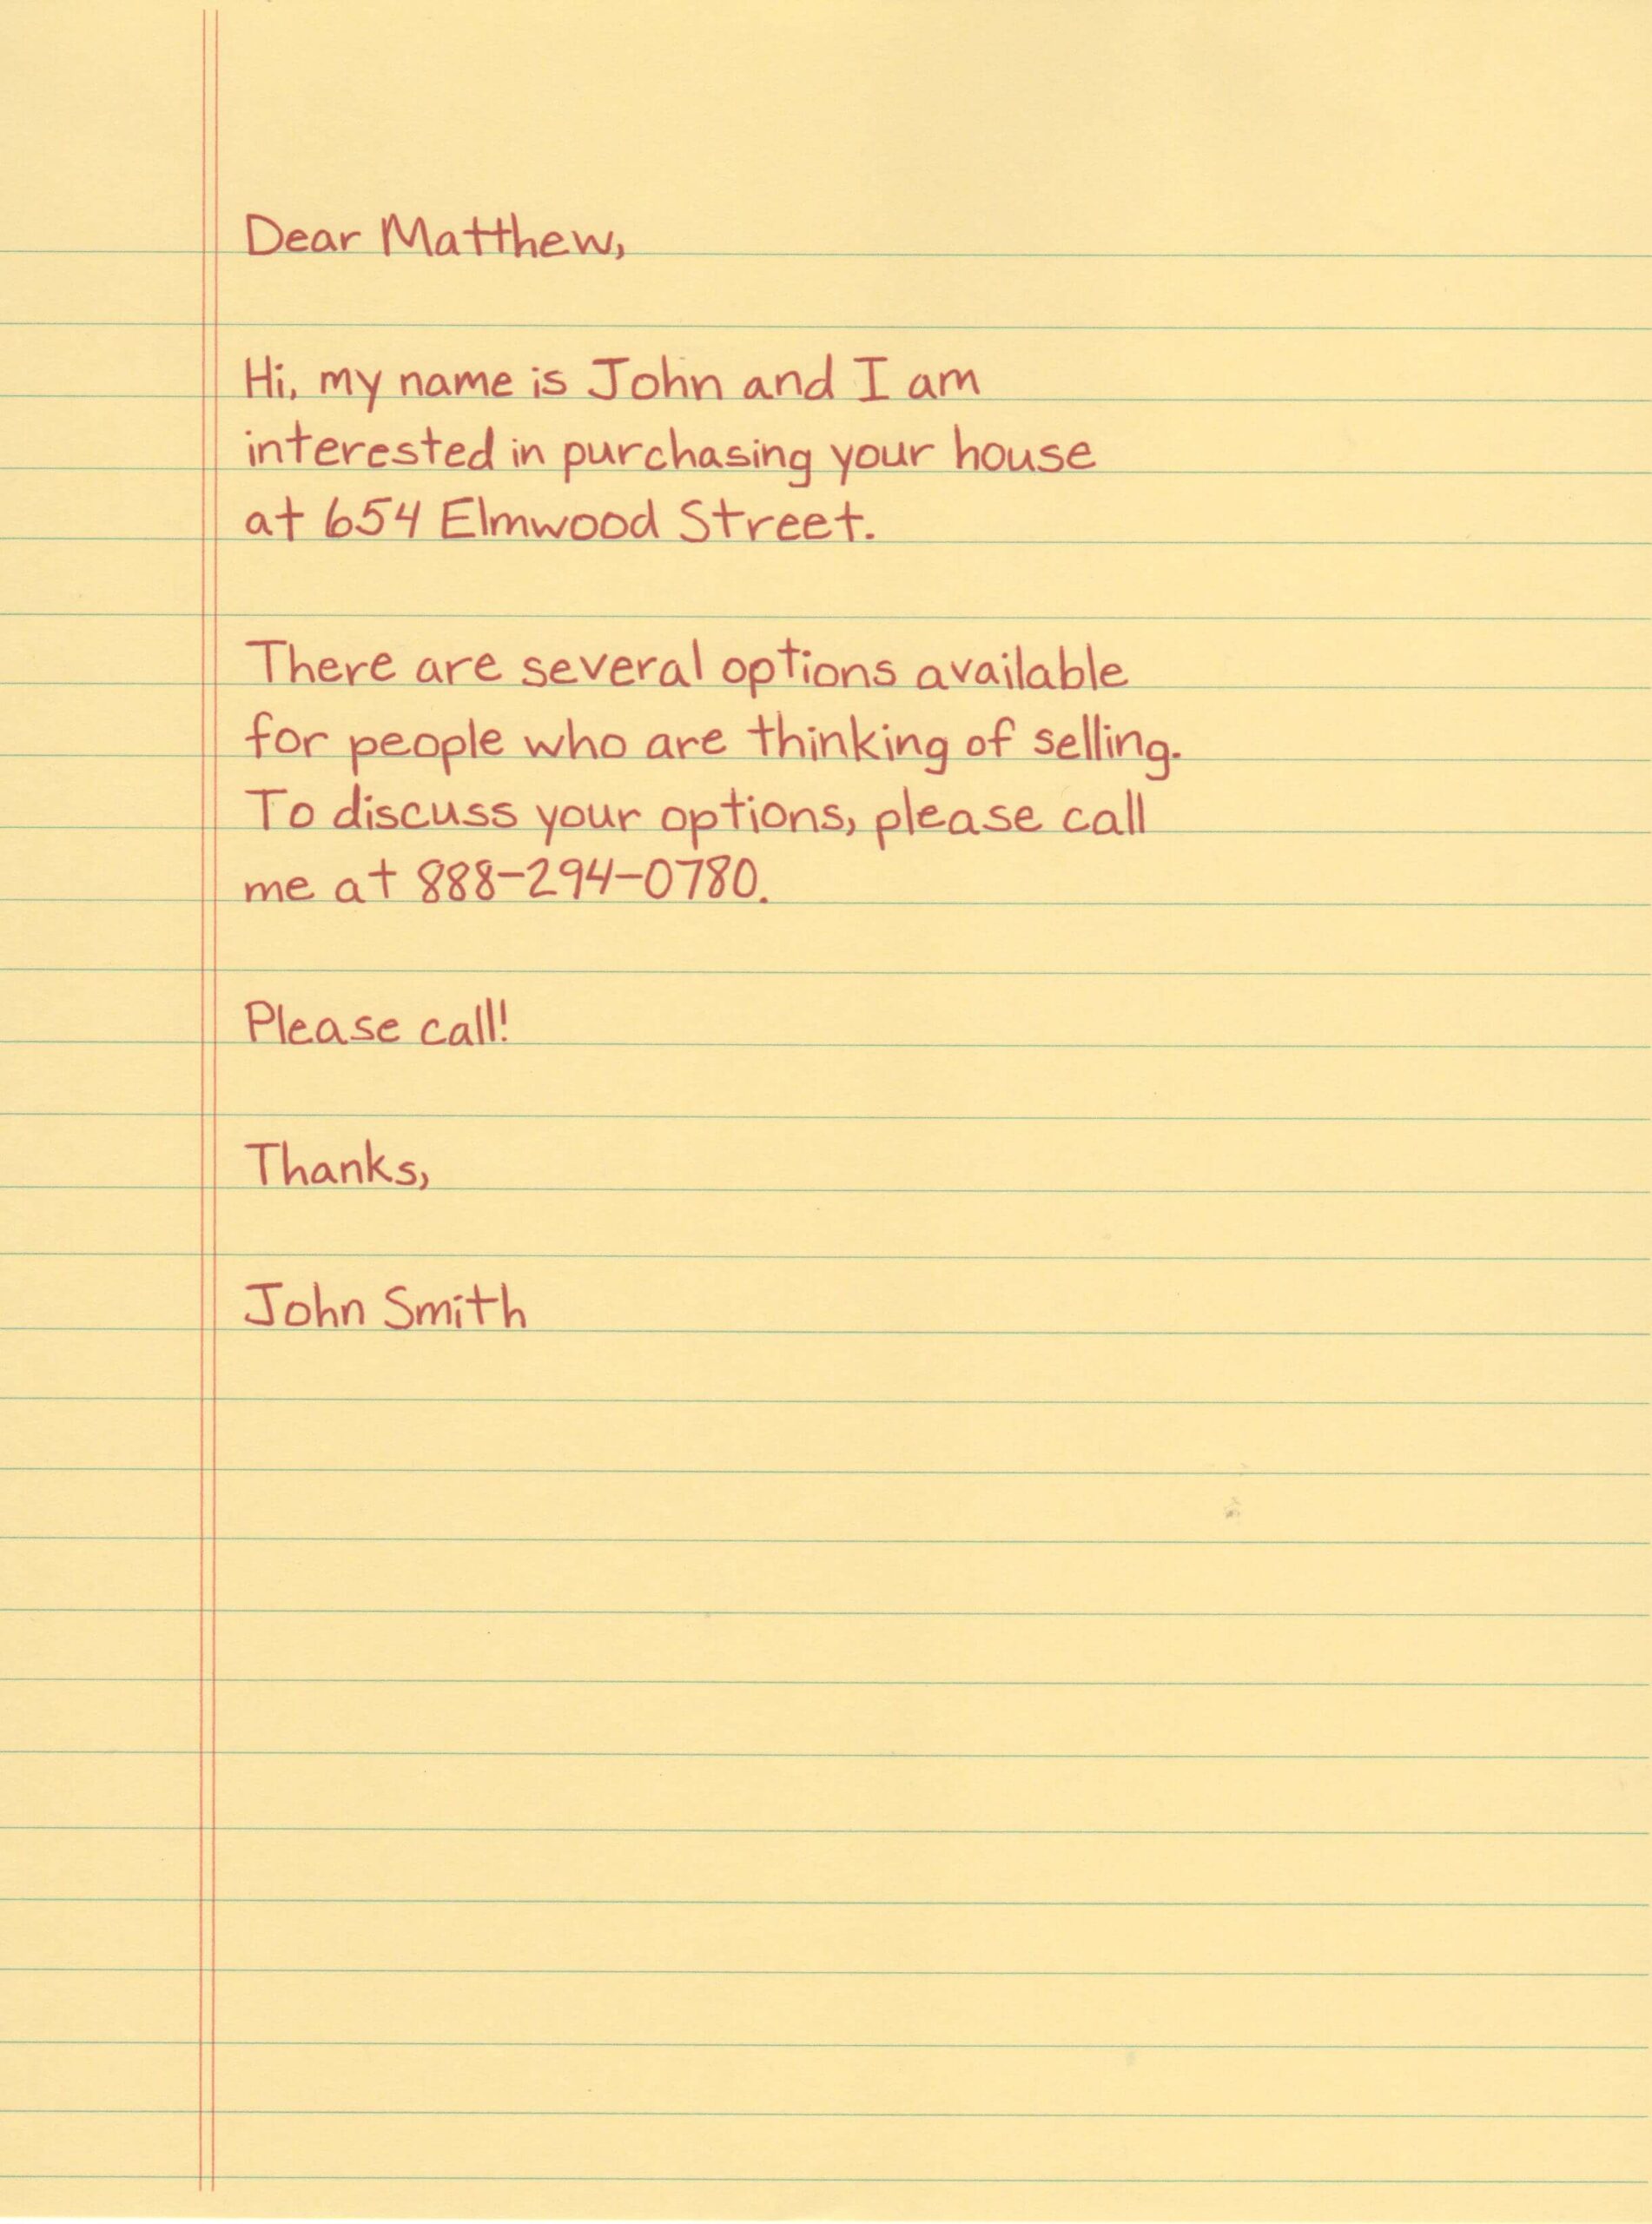 Dear Matthew,
Hi, my name is John and I am
interested in purchasing your house
at 654 Elmwood Street.
There are several options available
for people who are thinking of selling.
To discuss your options, please call
me at 888-294-0780.
Please call!
Thanks,
John Smith